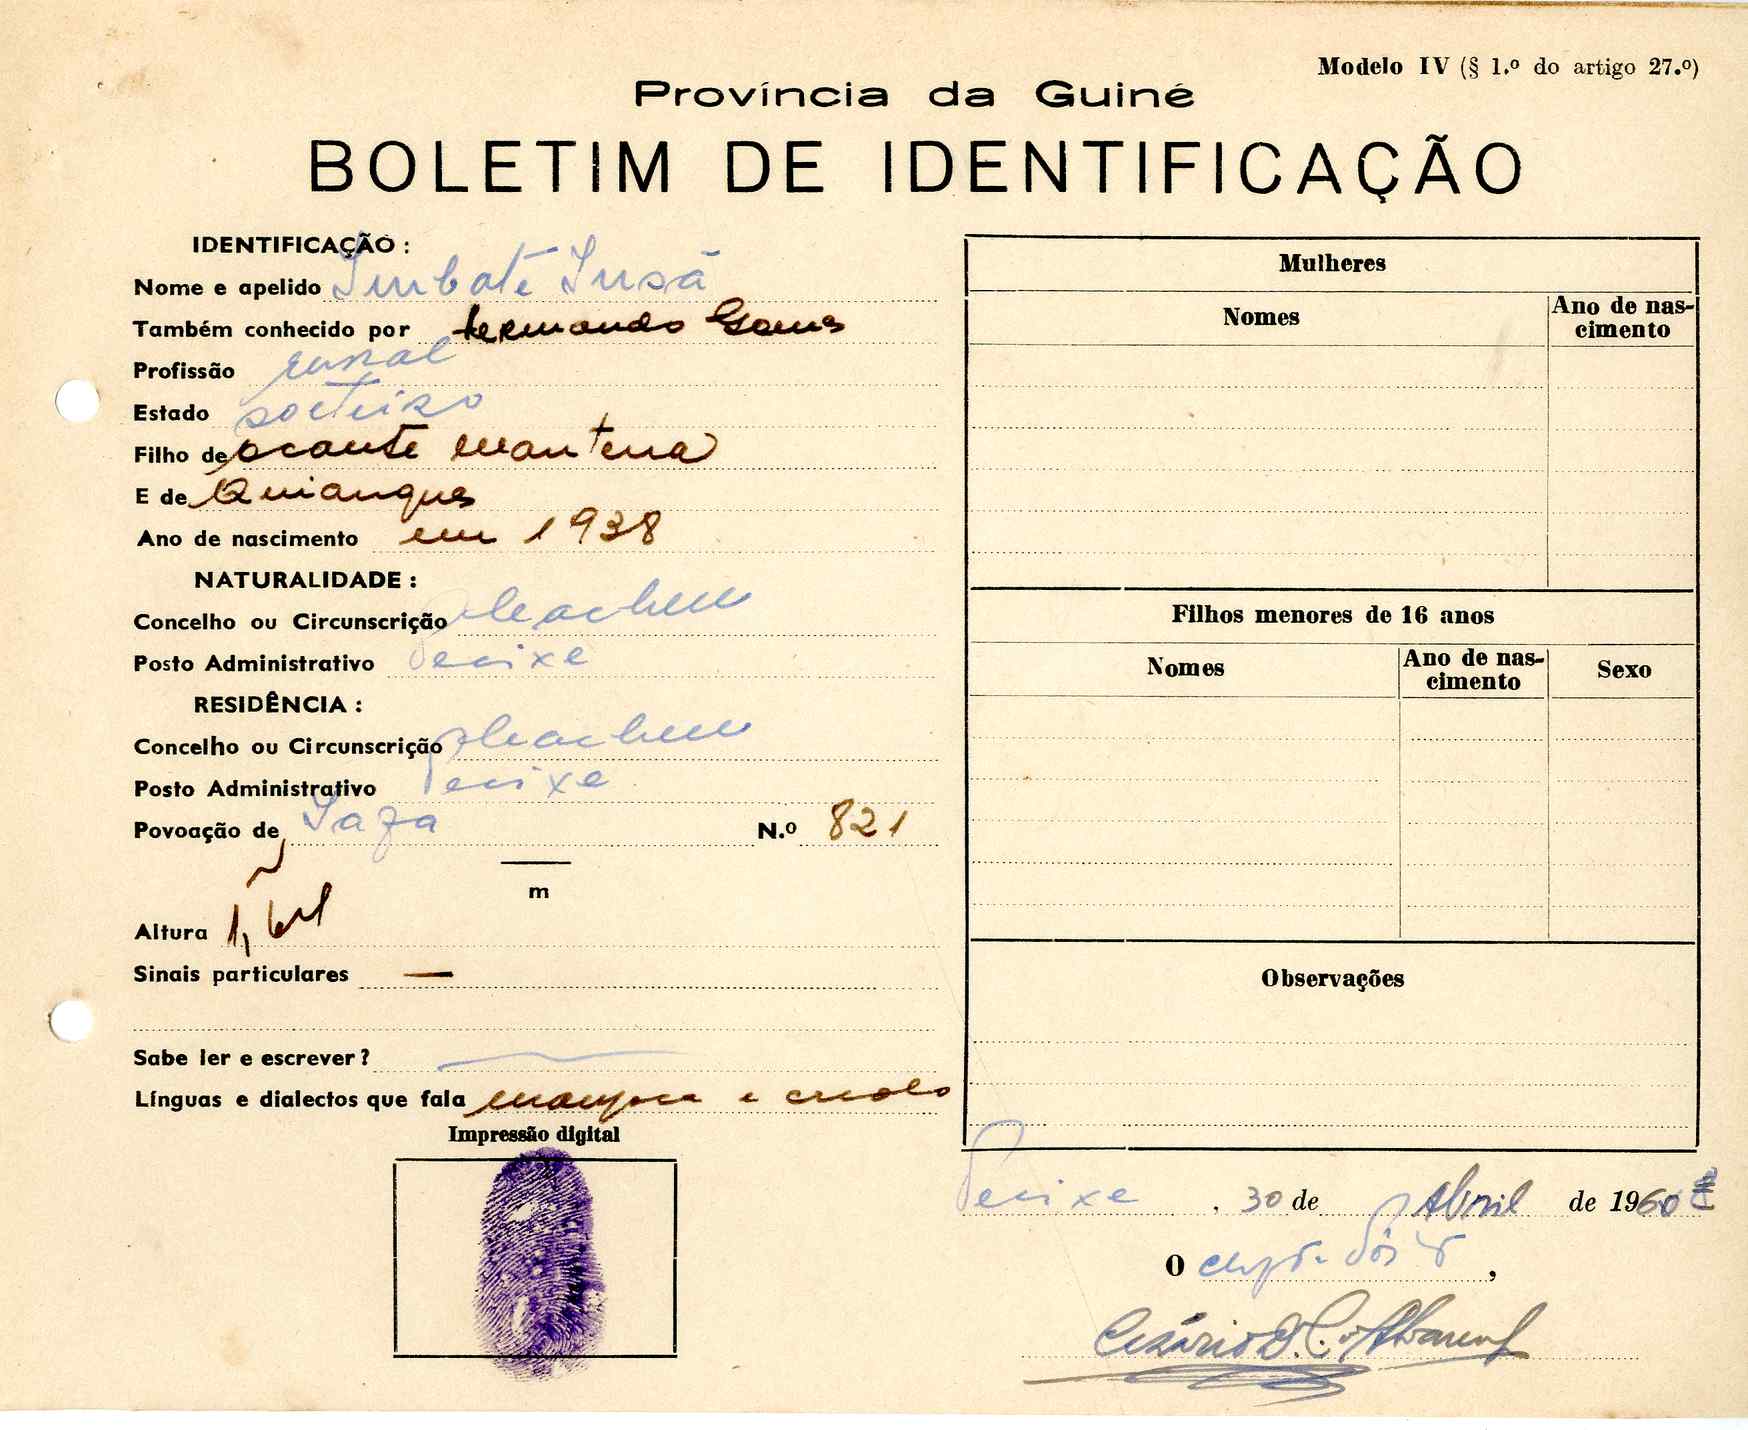 Modelo IV (§ 1.º do artigo 27.º)
Província da Guiné
BOLETIM DE IDENTIFICAÇÃO
IDENTIFICAÇÃO :
Nome e apelido Imbate Insã
Também conhecido por Hermando Gomes
Profissão rural
Estado solteiro
Filho de Ocante
E de Quiangues
Ano de nascimento em 1938
NATURALIDADE :
Concelho ou Circunscrição
Posto Administrativo Pecixe
RESIDÊNCIA :
Concelho ou Circunscrição
Posto Administrativo Pecixe
Povoação de N.º 821
m
Altura
Sinais particulares —
Sabe ler e escrever ? —
Línguas e dialectos que fala e creolo
Impressão digital
Mulheres
Nomes
Ano de nas-
cimento
Filhos menores de 16 anos
Nomes
Ano de nas-
cimento
Sexo
Observações
Pecixe, 30 de Abril de 1960
O
Cesário